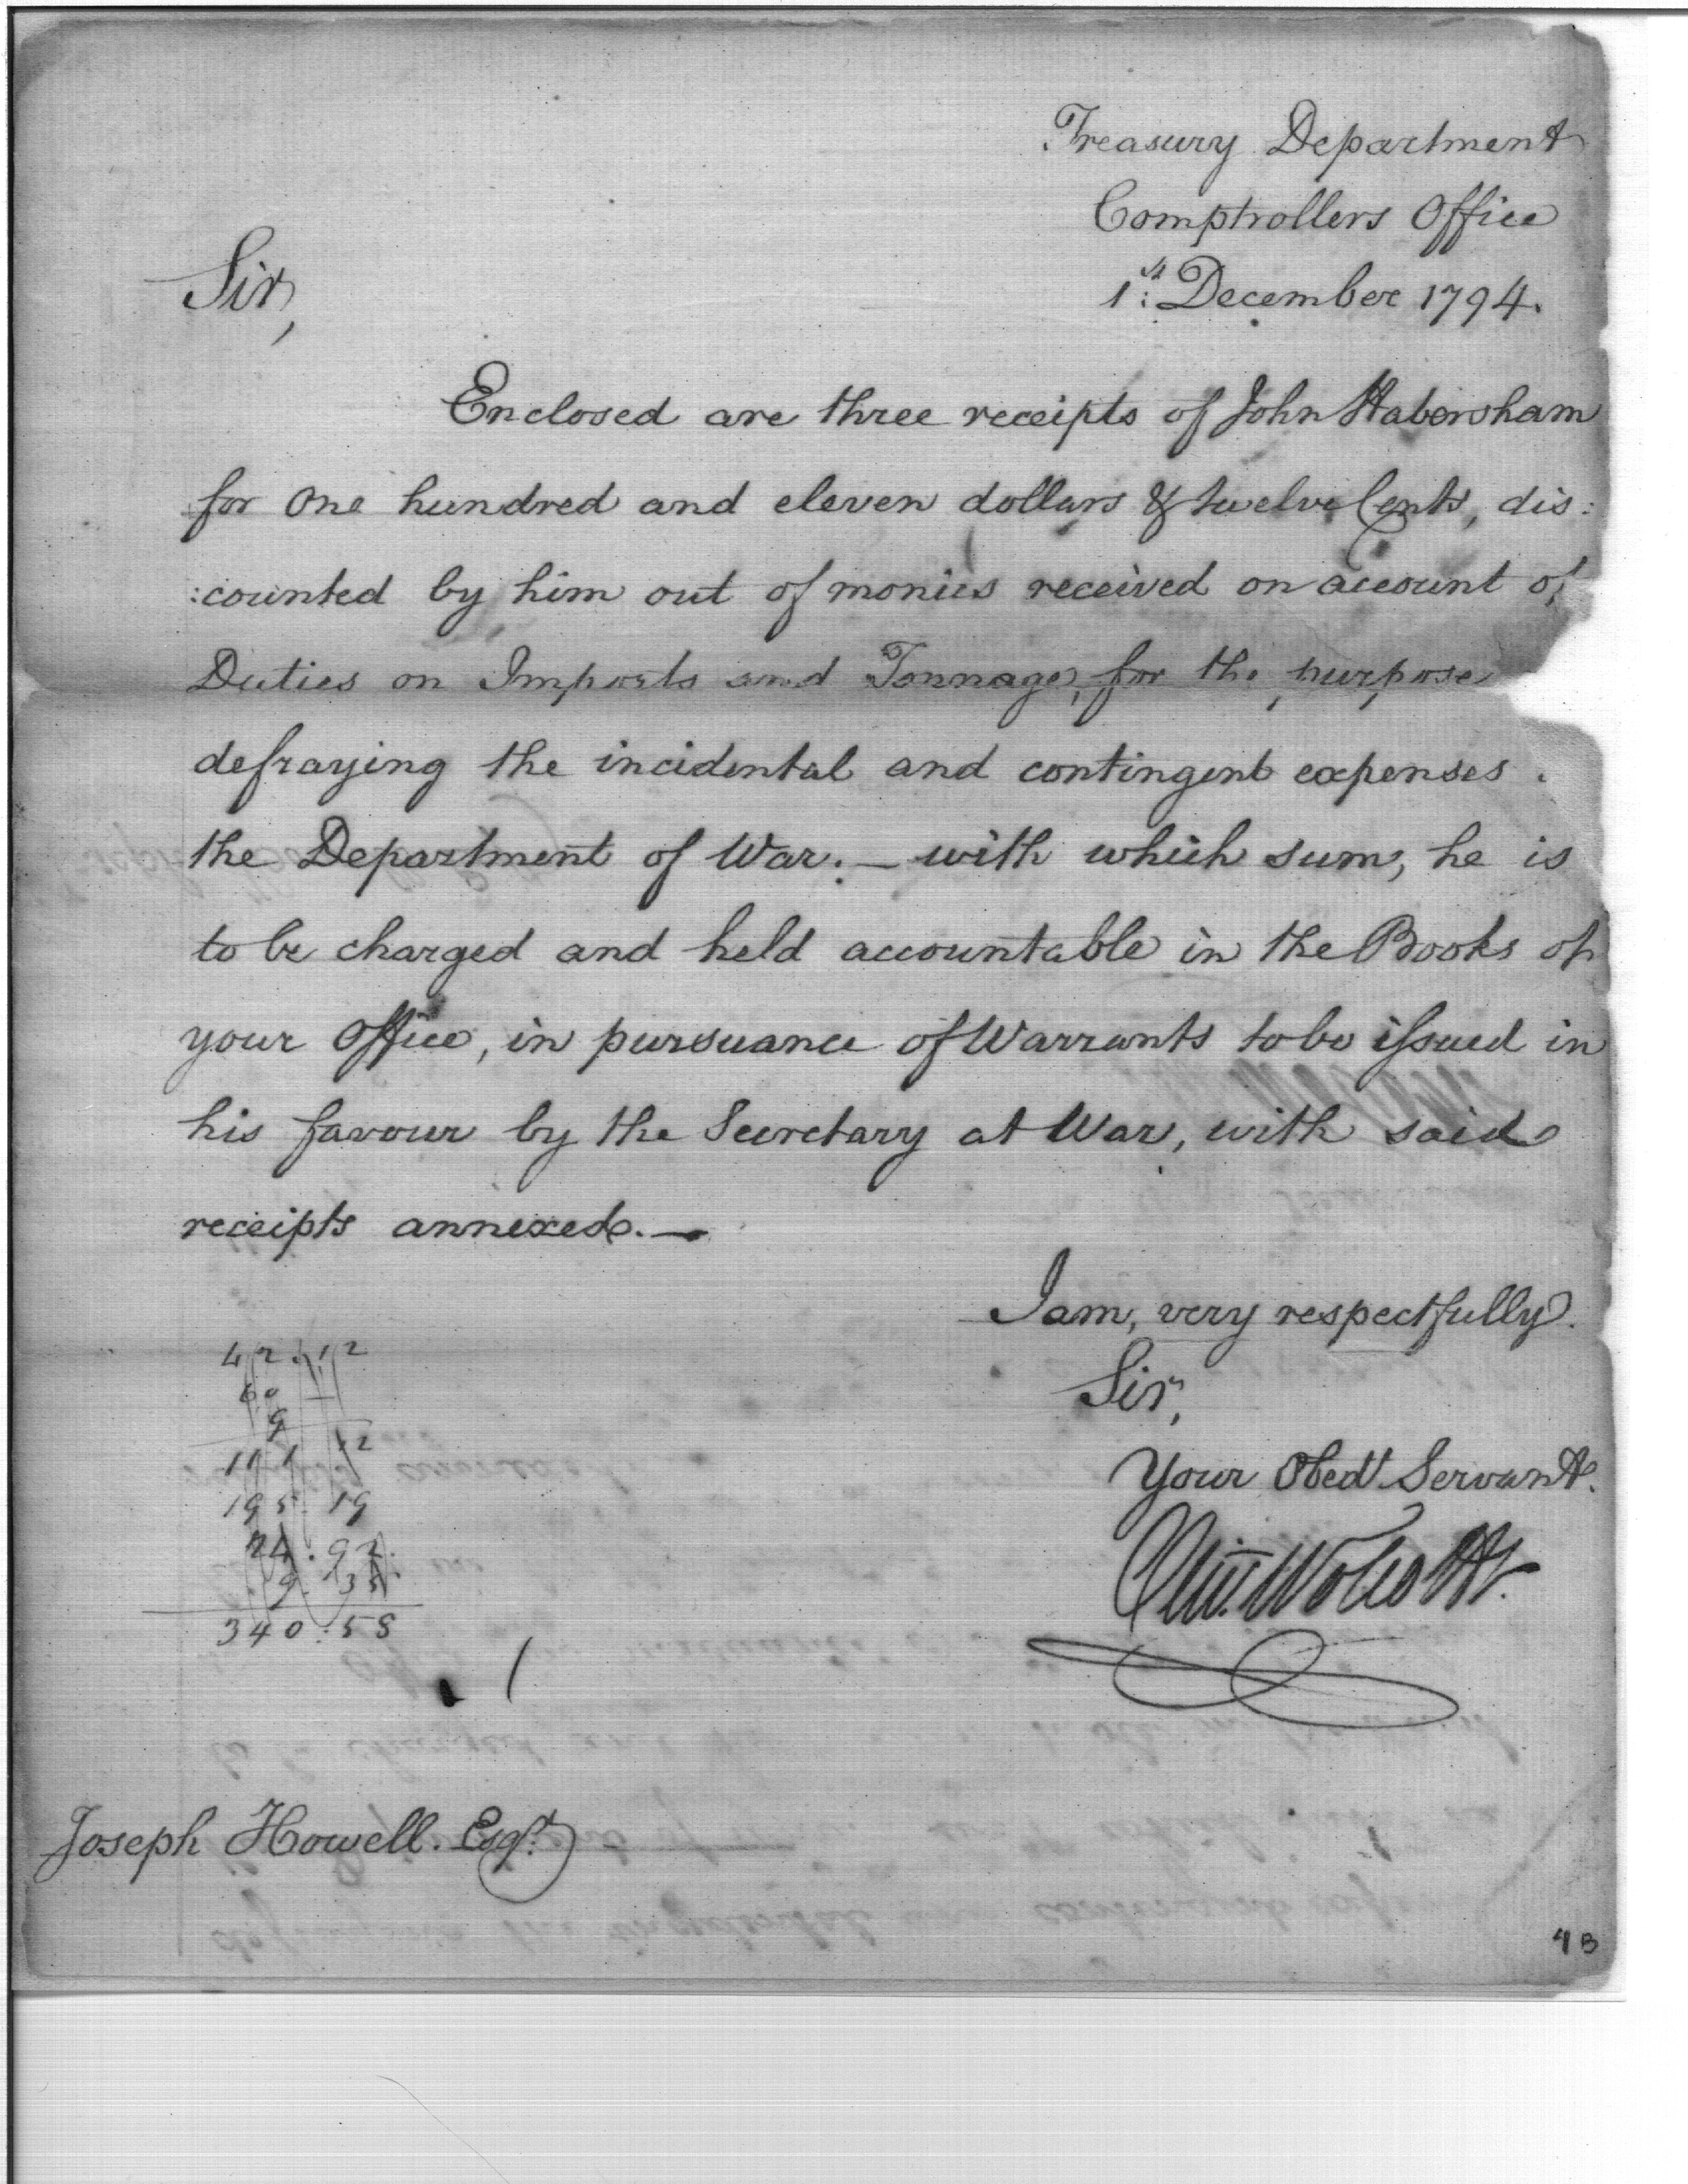 Treasury Department
Comptrollers Office
1st December 1794.
Sir,
Enclosed are three receipts of John Habersham
for One hundred and eleven dollars & twelve Cents, dis:
:counted by him out of monies received on account of
Duties on Imports and Tonnage, for the purpose
defraying the incidental and contingent expenses
the Department of War. — with which sum, he is
to be charged and held accountable in the Books of
your Office, in pursuance of Warrants to be issued in
his favour by the Secretary at War, with said
receipts annexed. —
I am, very respectfully.
Sir,
Your Obedt Servant.
Oliv. Wolcott Jr.
42.12
60 —
9
111 12
195.19
24.92
9.35
340.58
Joseph Howell. Esqr.